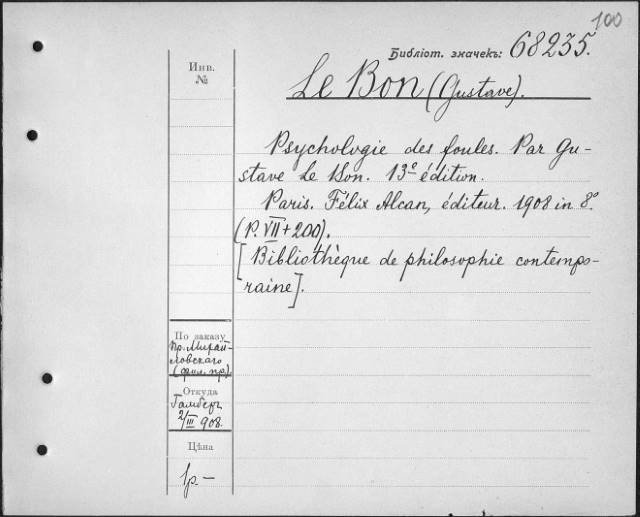 100
Библіот. значекъ: 68235.
Инв.
№
Le Bon (Gustave).
Psychologie des foules. Par Gu-
stave Le Bon. 13e édition.
Paris. Félix Alcan, éditeur. 1908 in 8°.
(P. VII + 200).
[Bibliothèque de philosophie contempo-
raine].
По заказу
Пр. Михай-
ловскаго
(фил. пр).
Откуда
Гамберъ
2/III 908.
Цѣна
1р.-